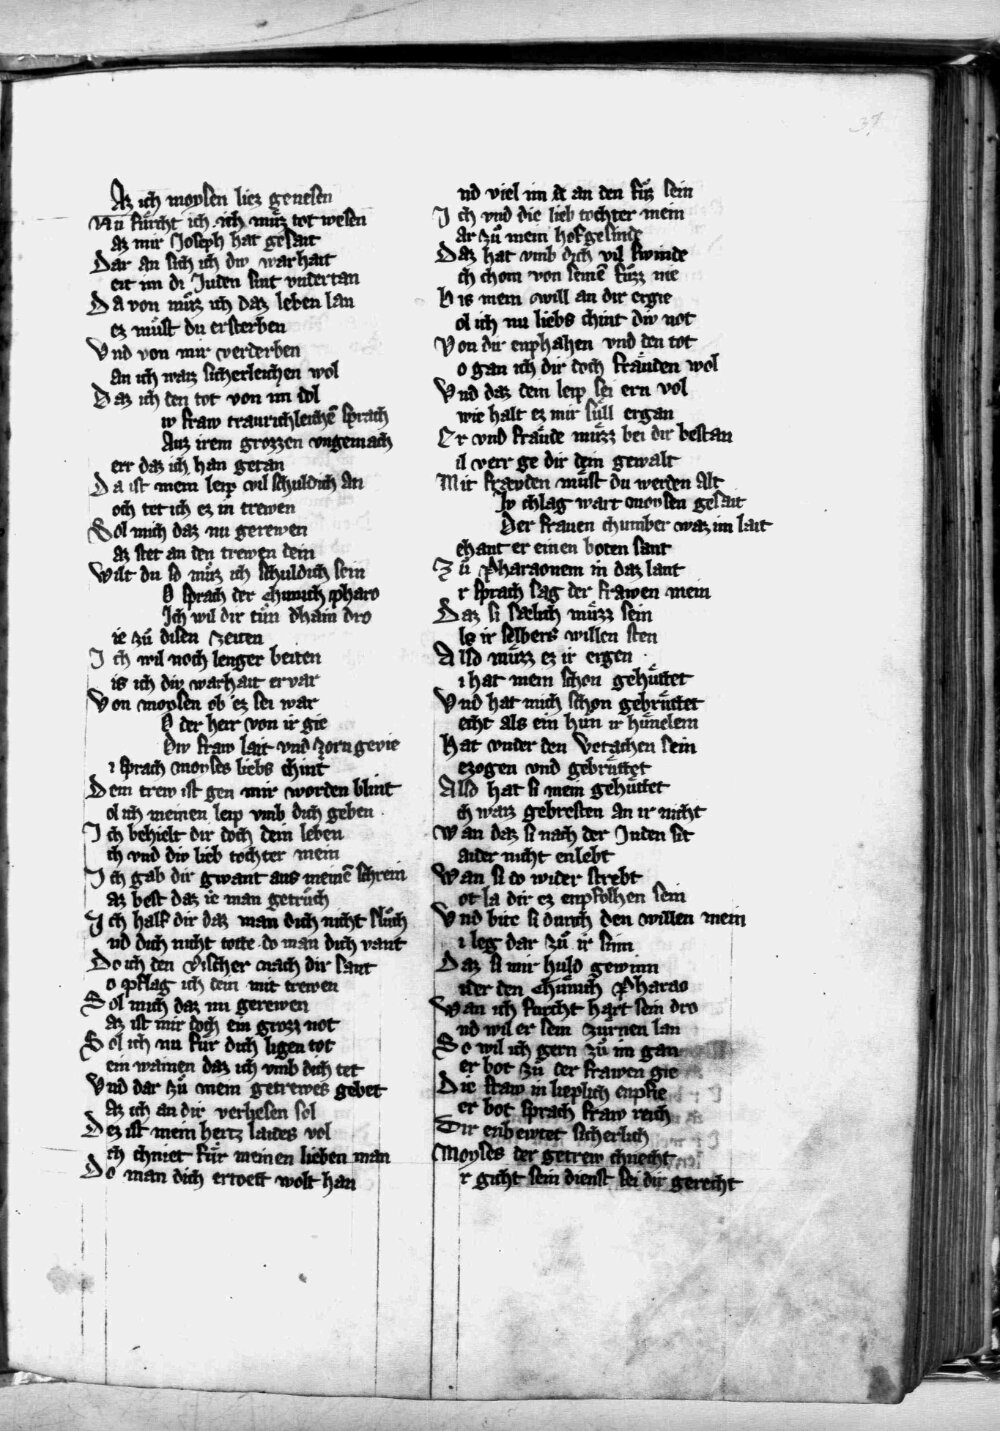 37
Az ich moysen liez genesen
Nu fürcht ich ich müz tot wesen
az mir Joseph hat gesait
Dar an sich ich div warhait
eit im di Juden sint vndertan
Da von müz ich daz leben lan
ez müst du ersterben
Vnd von mir verderben
an ich waiz sicherleichen wol
Daz ich den tot von im dol
iv fraw traurichleichē sprach
Auz irem grozzen vngemach
err daz ich han getan
Da ist mein leip vil schuldich an
och tet ich ez in trewen
Sol mich daz nu gerewen
az stet an den trewen dein
Wilt du so müz ich schuldich sein
O sprach der chünich pharo
Ich wil dir tün dhain dro
ie zü disen zeiten
Ich wil noch lenger beiten
is ich div warhait ervar
Von moysen ob ez sei war
O der herr von ir gie
Div fraw lait vnd zorn gevie
i sprach moyses liebs chint
Dem trew ist gen mir worden blint
ol ich meinen leip vmb dich geben
Ich behielt dir doch dein leben
ch vnd div lieb tochter mein
Ich gab dir gwant aus meinē schrein
az best daz ie man getrüch
Ich half dir daz man dich nicht slüch
nd dich nicht totte do man dich vant
Do ich den vischer nach dir sant
o pflag ich dein mit trewen
Sol mich daz nu gerewen
az ist mir doch ein grozz not
Sol ich nu für dich ligen tot
ein wainen daz ich vmb dich tet
Vnd dar zü mein getrewes gebet
Az ich an dir verliesen sol
Dez ist mein hertz laides vol
ch chniet für meinen lieben man
Do man dich ertoett wolt han
nd viel im an den füz sein
Ich vnd die lieb tochter mein
ar zü mein hofgesinde
Daz hat vmb dich vil swinde
ch chom von seinē füzz nie
His mein will an dir ergie
ol ich nu liebs chint div not
Von dir enphahen vnd den tot
o gan ich dir doch fräuden wol
Vnd daz dein leip sei ern vol
wie halt ez mir süll ergan
Er vnd fräude müzz bei dir bestan
il verr ge dir dein gewalt
Mit frawden müst du werden alt
Iv chlag wart moysen gesait
Der frauen chumber waz im lait
ehant er einen boten sant
Zü Pharaonem in daz lant
r sprach sag der frawen mein
Daz si sælich müzz sein
lo ir selbers willen sten
Also müzz ez ir ergen
i hat mein schon gehüttet
Vnd hat mich schon gebrüttet
echt als ein hun ir hünelein
Hat vnder den vetachen sein
ezogen vnd gebrüttet
Also hat si mein gehüttet
ch waz gebresten an ir nicht
Wan daz si nach der Juden sit
aider nicht enlebt
Wan si do wider strebt
ot la dir ez enpfolhen sein
Vnd bitt si durch den willen mein
i leg dar zü ir sinn
Daz si mir huld gewinn
ider den chünich Pharao
Wan ich furcht hart sein dro
nd wil er sein zürnen lan
So wil ich gern zü im gan
er bot zü der frawen gie
Die fraw in lieplich enpfie
er bot sprach fraw reich
Dir enbeutet sicherlich
Moyses der getrew chnecht
r gicht sein dienst sei dir gerecht